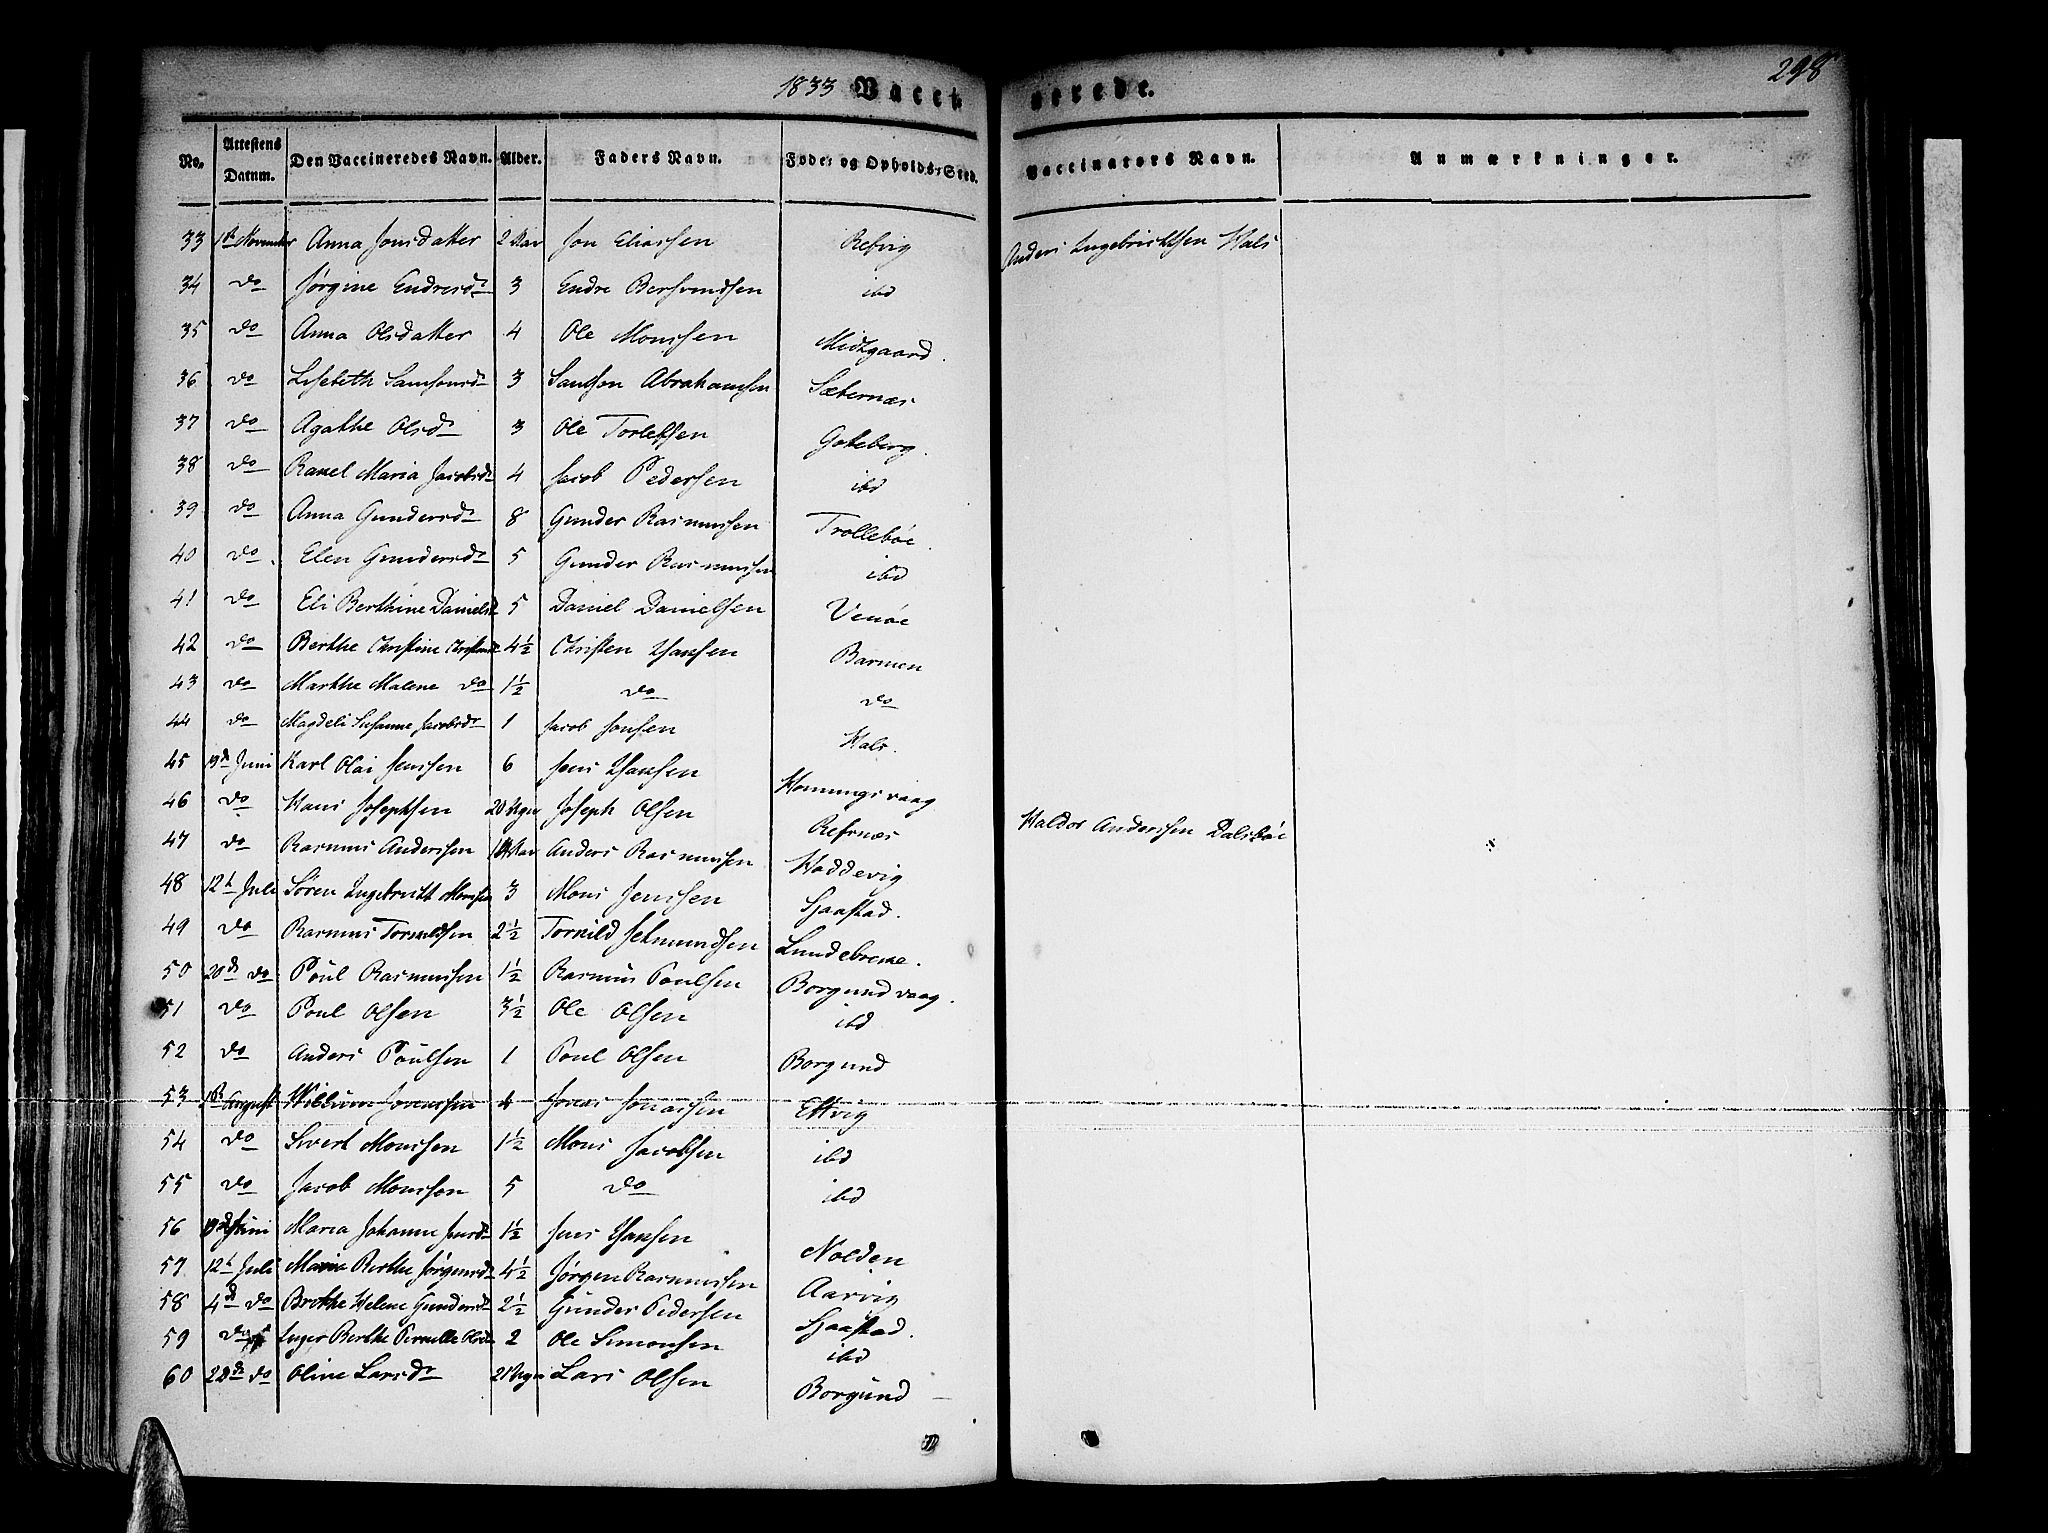 1833 Vaccinerede. 298
No. Attestens Datum. Den Vaccineredes Navn. Alder. Faders Navn. Føde- og Opholds-Sted. Vaccinators Navn. Anmærkninger.
33 1ste November Anna Jonsdatter 2 Aar Jon Eliassen Refvig Anders Ingebrichtsen Hals
34 do Jørgine Endresdr 3 Endre Bersvendsen ibd
35 do Anna Olsdatter 4 Ole Monssen Midtgaard.
36 do Lisebeth Samsonsdr 3 Samson Abrahamsen Sæternæs
37 do Agathe Olsdr 3 Ole Torlefsen Goteberg.
38 do Ranel Maria Jacobsdr 4 Jacob Pedersen ibd
39 do Anna Gundersdr 8 Gunder Rasmussen Trollebøe.
40 do. Elen Gundersdr 5 Gunder Rasmussen ibd
41 do Eli Berthine Danielsdr 5 Daniel Danielsen Venøe
42 do Berthe Christine Christensdr 4½ Christen Hansen Barmen
43 do Marthe Malene do 1½ do do
44 do Magdeli Susanne Jacobsdr 1 Jacob Jonsen Hals.
45 19d Juni Karl Olai Jenssen 6 Jens Hansen Honningsvaag
46 do Hans Josephsen 20 Uger Joseph Olsen Refsnæs Haldor Anderssen Dalsbøe
47 do Rasmus Anderssen Aar Anders Rasmussen Hoddevig
48 12t Juli Sören Ingebricht Monsen 3 Mons Jenssen Sjaastad.
49 do Rasmus Tormildsen 2½ Tormild Selmundsen Lundebreke.
50 20de do Poul Rasmussen 1½ Rasmus Poulsen Borgundvaag.
51 do Poul Olsen 3½ Ole Olsen ibd
52 do Anders Poulsen 1 Poul Olsen Borgund
53 August Willum Jonassen 4 Jonas Jonassen Ettvig
54 do Sivert Monssen 1½ Mons Jacobsen ibd
55 do Jacob Monssen 5 do ibd
56 19de Juni Maria Johanne Jensdr 1½ Jens Hansen Nolden
57 12t Juli Maria Berthe Jørgensdr 4½ Jørgen Rasmussen Aarvig
58 4d do Brethe Helene Gundersdr 2½ Gunder Pedersen Sjaastad.
59 do Inger Berthe Pernille Olsdr 2 Ole Simonsen ibd
60 22de do Oline Larsdr 21 Uger Lars Olsen Borgund